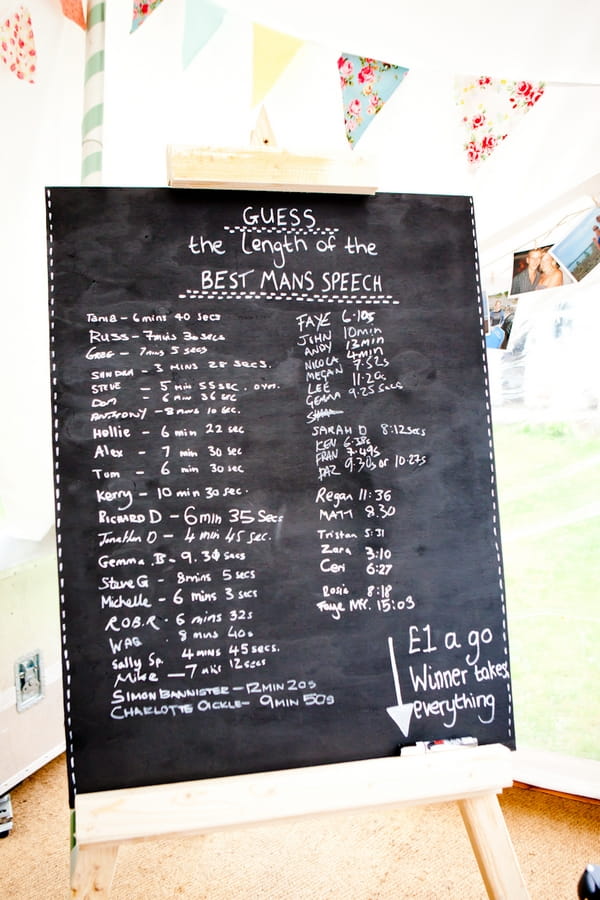 GUESS
the length of the
BEST MANS SPEECH
Tania - 6 mins 40 secs
RUSS - 7 mins 30 secs
GREG - 7 mins 5 secs
SANDRA - 3 MINS 28 SECS.
STEVE - 5 min 55 SEC.
Dom - 6 min 36 sec
ANTHONY - 8 mins 10 sec.
Hollie - 6 min 22 sec
Alex - 7 min 30 sec
Tom - 6 min 30 sec
Kerry - 10 min 30 sec.
RICHARD D - 6 min 35 Secs
Jonathan D - 4 min 45 sec.
Gemma. B - 9.30 secs
Steve G - 8mins 5 secs
Michelle - 6 mins 3 secs
ROB.R - 6 mins 32s
WAG 8 mins 40s
Sally Sp. 4 mins 45 secs.
Mike - 7 mins 12 secs
SIMON BANNISTER - 12 MIN 20S
CHARLOTTE OICKLE - 9 MIN 50S
FAYE 6.10s
JOHN 10min
ANDY 12min
NICOLA 4min
MEGAN 7.52s
LEE 11.20
GEMMA 9.25 Secs
SARAH D 8:12secs
KEN 6.38s
FRAN 7.49s
DAZ 9.30s or 10:27s
Regan 11:36
MATT 8.30
Tristan 5:31
Zara 3:10
Ceri 6:27
Rosie 8:18
Faye MK. 15:03
£1 a go
Winner takes
everything